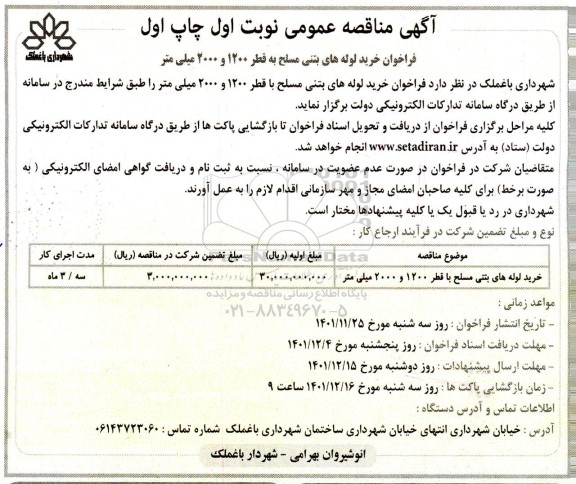 آگهی مناقصه عمومی نوبت اول چاپ اول
شهرداری باغملک
فراخوان خرید لوله های بتنی مسلح به قطر ۱۲۰۰ و ۲۰۰۰ میلی متر
شهرداری باغملک در نظر دارد فراخوان خرید لوله های بتنی مسلح با قطر ۱۲۰۰ و ۲۰۰۰ میلی متر را طبق شرایط مندرج در سامانه
از طریق درگاه سامانه تدارکات الکترونیکی دولت برگزار نماید.
کلیه مراحل برگزاری فراخوان از دریافت و تحویل اسناد فراخوان تا بازگشایی پاکت ها از طریق درگاه سامانه تدارکات الکترونیکی
دولت (ستاد) به آدرس www.setadiran.ir انجام خواهد شد.
متقاضیان شرکت در فراخوان در صورت عدم عضویت در سامانه ، نسبت به ثبت نام و دریافت گواهی امضای الکترونیکی ( به
صورت برخط) برای کلیه صاحبان امضای مجاز و مهر سازمانی اقدام لازم را به عمل آورند.
شهرداری در رد یا قبول یک یا کلیه پیشنهادها مختار است.
نوع و مبلغ تضمین شرکت در فرآیند ارجاع کار :
موضوع مناقصه مبلغ اولیه (ریال) مبلغ تضمین شرکت در مناقصه (ریال) مدت اجرای کار
خرید لوله های بتنی مسلح با قطر ۱۲۰۰ و ۲۰۰۰ میلی متر ۳۰,۰۰۰,۰۰۰,۰۰۰ ۳,۰۰۰,۰۰۰,۰۰۰ سه / ۳ ماه
پایگاه اطلاع رسانی مناقصه و مزایده
۰۲۱-۸۸۳۴۹۶۷۰-۵
مواعد زمانی :
- تاریخ انتشار فراخوان : روز سه شنبه مورخ ۱۴۰۱/۱۱/۲۵
- مهلت دریافت اسناد فراخوان : روز پنجشنبه مورخ ۱۴۰۱/۱۲/۴
- مهلت ارسال پیشنهادات : روز دوشنبه مورخ ۱۴۰۱/۱۲/۱۵
- زمان بازگشایی پاکت ها : روز سه شنبه مورخ ۱۴۰۱/۱۲/۱۶ ساعت ۹
اطلاعات تماس و آدرس دستگاه :
آدرس : خیابان شهرداری انتهای خیابان شهرداری ساختمان شهرداری باغملک شماره تماس : ۰۶۱۴۳۷۲۳۰۶۰
انوشیروان بهرامی - شهردار باغملک